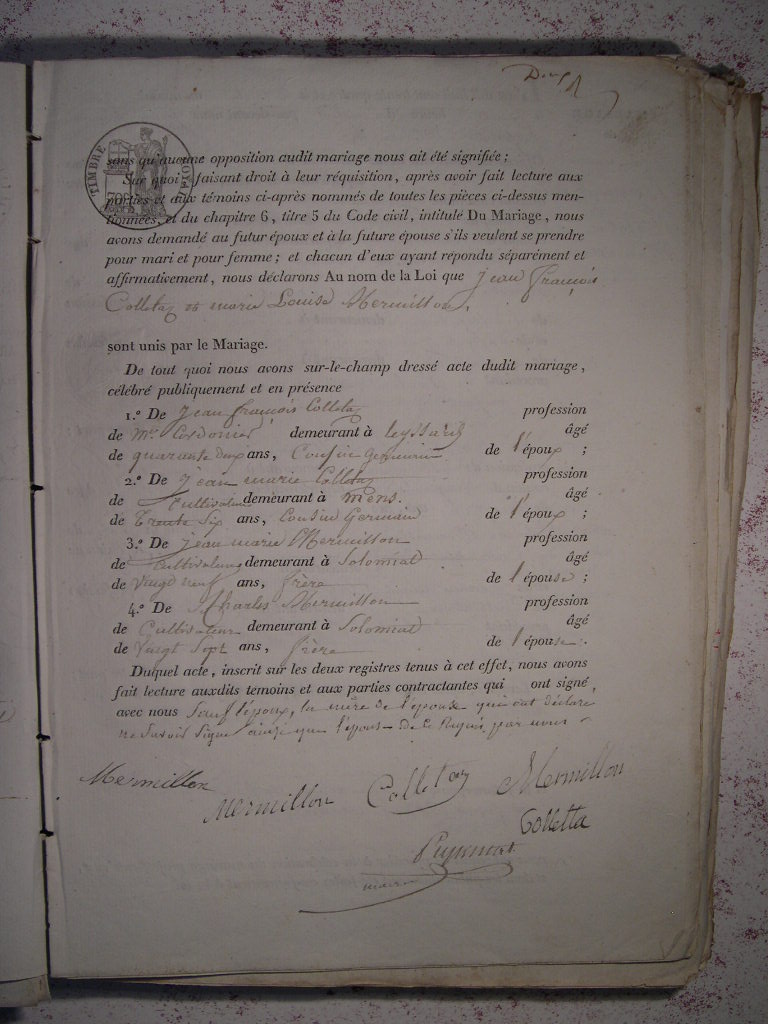 Deux
TIMBRE ROYAL
sans qu'aucune opposition audit mariage nous ait été signifiée ;
Sur quoi, faisant droit à leur réquisition, après avoir fait lecture aux
parties et aux témoins ci-après nommés de toutes les pièces ci-dessus men-
tionnées, et du chapitre 6, titre 5 du Code civil, intitulé Du Mariage, nous
avons demandé au futur époux et à la future épouse s'ils veulent se prendre
pour mari et pour femme ; et chacun d'eux ayant répondu séparément et
affirmativement, nous déclarons Au nom de la Loi que Jean François
Colletaz et marie Louise Mermillon,
sont unis par le Mariage.
De tout quoi nous avons sur-le-champ dressé acte dudit mariage,
célébré publiquement et en présence
1.º De Jean françois Colletaz profession
de Mre Cordonier demeurant à leyssard âgé
de quarante deux ans, Cousin germain de l'époux ;
2.º De Jean marie Colletaz profession
de Cultivateur demeurant à mens. âgé
de Trente Six ans, Cousin Germain de l'époux ;
3.º De Jean marie Mermillon profession
de Cultivateur demeurant à Solomiat âgé
de Vingt neuf ans, frère de l'épouse ;
4.º De Charles Mermillon profession
de Cultivateur demeurant à Solomiat âgé
de Vingt Sept ans, frère de l'épouse.
Duquel acte, inscrit sur les deux registres tenus à cet effet, nous avons
fait lecture auxdits temoins et aux parties contractantes qui ont signé,
avec nous Sauf l'époux, la mère de l'époux qui ont déclaré
ne Savoir Signer ainsi que l'épouse de ce Requis par nous
Mermillon
Mermillon Colletaz Mermillon
Colletta
maire